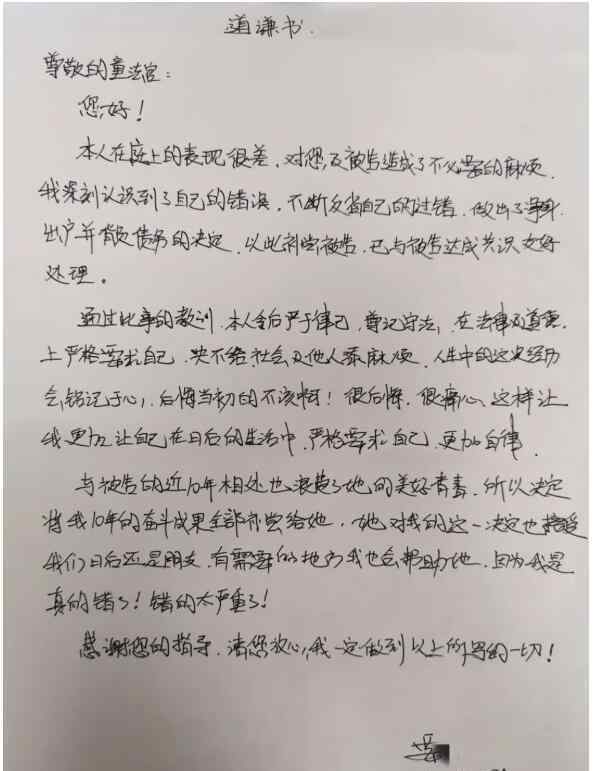 道谦书.
尊敬的童法官：
您好！
本人在庭上的表现很差，对您及被告造成了不必要的麻烦.
我深刻认识到了自己的错误，不断反省自己的过错，做出了净身
出户并背负债务的决定，以此补偿被告，已与被告达成共识友好
处理。
通过此事的教训，本人今后严于律己，尊记守法，在法律及道德
上严格要求自己，决不给社会及他人添麻烦，人生中的这次经历
会铭记于心，后悔当初的不该啊！很后悔，很痛心，这样让
我更加让自己在日后的生活中，严格要求自己，更加自律，
与被告的近10年相处也浪费了她的美好青春，所以决定
将我10年的奋斗成果全部补偿给她，她对我的这一决定也接受
我们日后还是朋友，有需要的地方我也会帮助她，因为我是
真的错了！错的太严重了！
感谢您的指导，请您放心，我一定做到以上所写的一切！